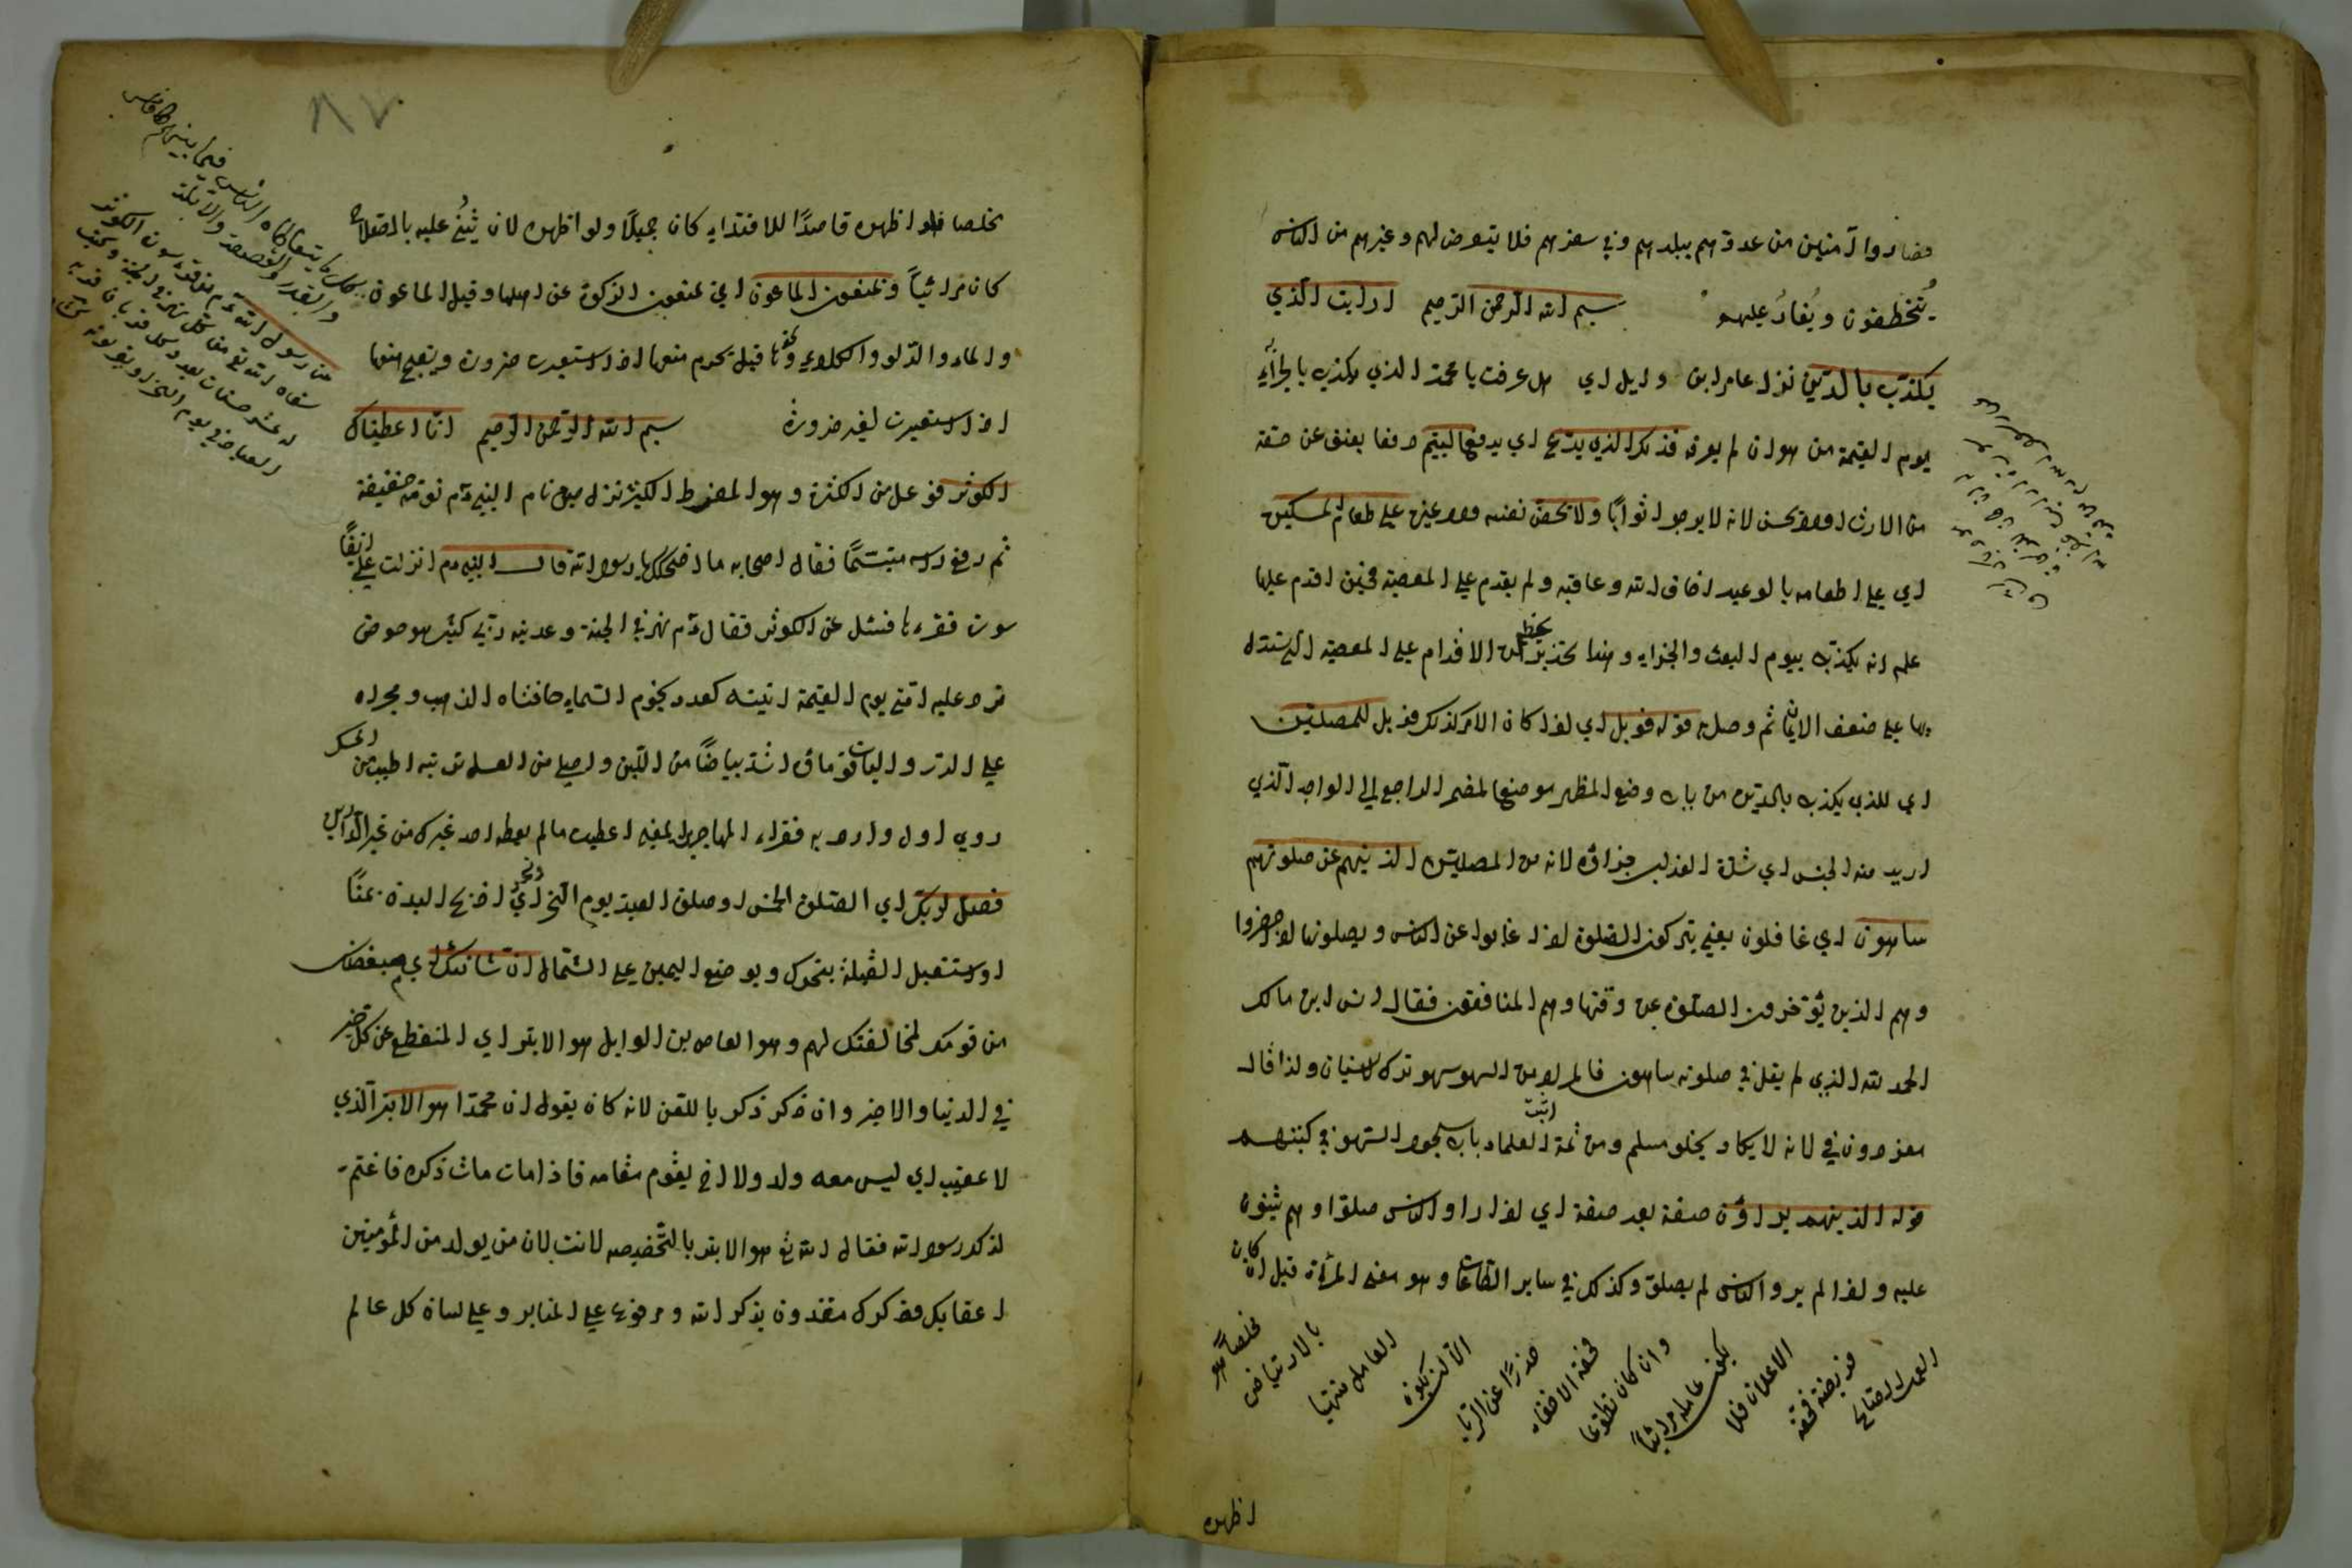 فصاروا آمنين من عدوهم ببلدهم وفي سفرهم فلا يتعرض لهم وغيرهم من الناس
يتخطفون ويغار عليهم بسم الله الرحمن الرحيم ارايت الذي
يكذب بالدين نزل عامر ابن وايل اي هل عرفت يا محمد الذي يكذب بالجزاء
يوم القيمة من هو ان لم يعرف فذلك الذي يدع اي يدفع اليتيم دفعا بعنف عن حقه
من الارث لانه لا يرجو ثوابا ولا يحض نفسه وغيره على طعام المسكين
اي على اطعامه بالوعيد لخاف الله وعاقبه ولم يقدم على المعصية فحين اقدم عليها
علم انه يكذب بيوم البعث والجزاء وهذا تحذير عن الاقدام على المعصية التي يستدل
بها على ضعف الايمان ثم وصل به قوله فويل اي اذا كان الامر كذلك فويل للمصلين
اي للذي يكذب بالدين من باب وضع المظهر موضع المضمر الراجع الى الواحد الذي
اريد منه الجنس اي شدة العذاب جزاؤه لانه من المصلين الذين هم عن صلوتهم
ساهون اي غافلون يعني يتركون الصلوة اذا غابوا عن الناس ويصلونها اذا حضروا
وهم الذين يؤخرون الصلوة عن وقتها وهم المنافقون فقال انس ابن مالك
الحمد لله الذي لم يقل في صلوته ساهون فالمراد من السهو سهو ترك لا نسيان ولذا قال
معن دون في لانه لا يكاد يخلو مسلم ومن ثمة اثبت العلماء باب سجود السهو في كتبهم
قوله الذين هم يراؤن صفة بعد صفة اي اذا راو الناس صلوا وهم يثنون
عليه واذا لم يروا الناس لم يصلوا وكذلك في ساير الطاعات وهو معنى المرئة قيل ان كان
العمل الصالح
فريضة فحقه
الاعلان فلا
يكون عامله مرائيا
وان كان تطوعا
فحقه الاخفاء
حذرا عن الريا
الا ان يكون
العامل منتهيا
بالارتياض
مخلصا فهو
اظهره
٨٧
مخلصا فلو اظهره قاصدا للاقتداء كان جميلا ولو اظهره لان يثنى عليه بالصلاح
كان مرائيا ويمنعون الماعون اي يمنعون الزكوة عن اهلها وقيل الماعون
والماء والدلو والكلاء ونحوها قيل يحرم منعها اذا استعيرت ضرورة ويقبح منعها
اذا استعيرت لغير ضرورة بسم الله الرحمن الرحيم انا اعطيناك
الكوثر فوعل من الكثرة وهو المفرط الكثير نزل حين نام النبي عم نومة خفيفة
ثم رفع راسه متبسما فقال اصحابه ما اضحكك يا رسول الله قال النبي عم انزلت علي انفا
سورة فقراها فسئل عن الكوثر فقال عم نهر في الجنة وعدنيه ربي كثير هو حوض
ترد عليه امتي يوم القيمة انيته كعدد نجوم السماء حافتاه الذهب ومجراه
على الدر والياقوت ماؤه اشد بياضا من اللبن واحلى من العسل تربته اطيب من المسك
روي اول وارد به فقراء المهاجرين المعنى اعطيت ما لم يعطه احد غيرك من خير الدارين
فصل لربك اي الصلوة الخمس او صلوة العيد يوم النحر وانحر اي اذبح البدن بمنا
او استقبل القبلة بنحرك او بوضع اليمين على الشمال ان شانئك اي مبغضك
من قومك لمخالفتك لهم وهو العاص بن الوايل هو الابتر اي المنقطع عن كل خير
في الدنيا والاخرة وان ذكر ذكر باللعن لانه كان يقول ان محمدا هو الابتر الذي
لا عقب اي ليس معه ولد ولا اخ يقوم مقامه فاذا مات مات ذكره فاغتم
لذلك رسول الله فقال الله تع هو الابتر بالتخصيص لا انت لان من يولد من المؤمنين
اعقابك فذكرك مقرون بذكر الله ومرفوع على المنابر وعلى لسان كل عالم
كل ما يتعاطاه الناس فيما بينهم كالفاس
والقدر والقصعة والابرة
عن رسول الله عم من قرء سورة الكوثر
سقاه الله تع من كل نهر في الجنة ويكتب
له عشر حسنات بعدد كل قربان قربه
العباد في يوم النحر او يقربونه